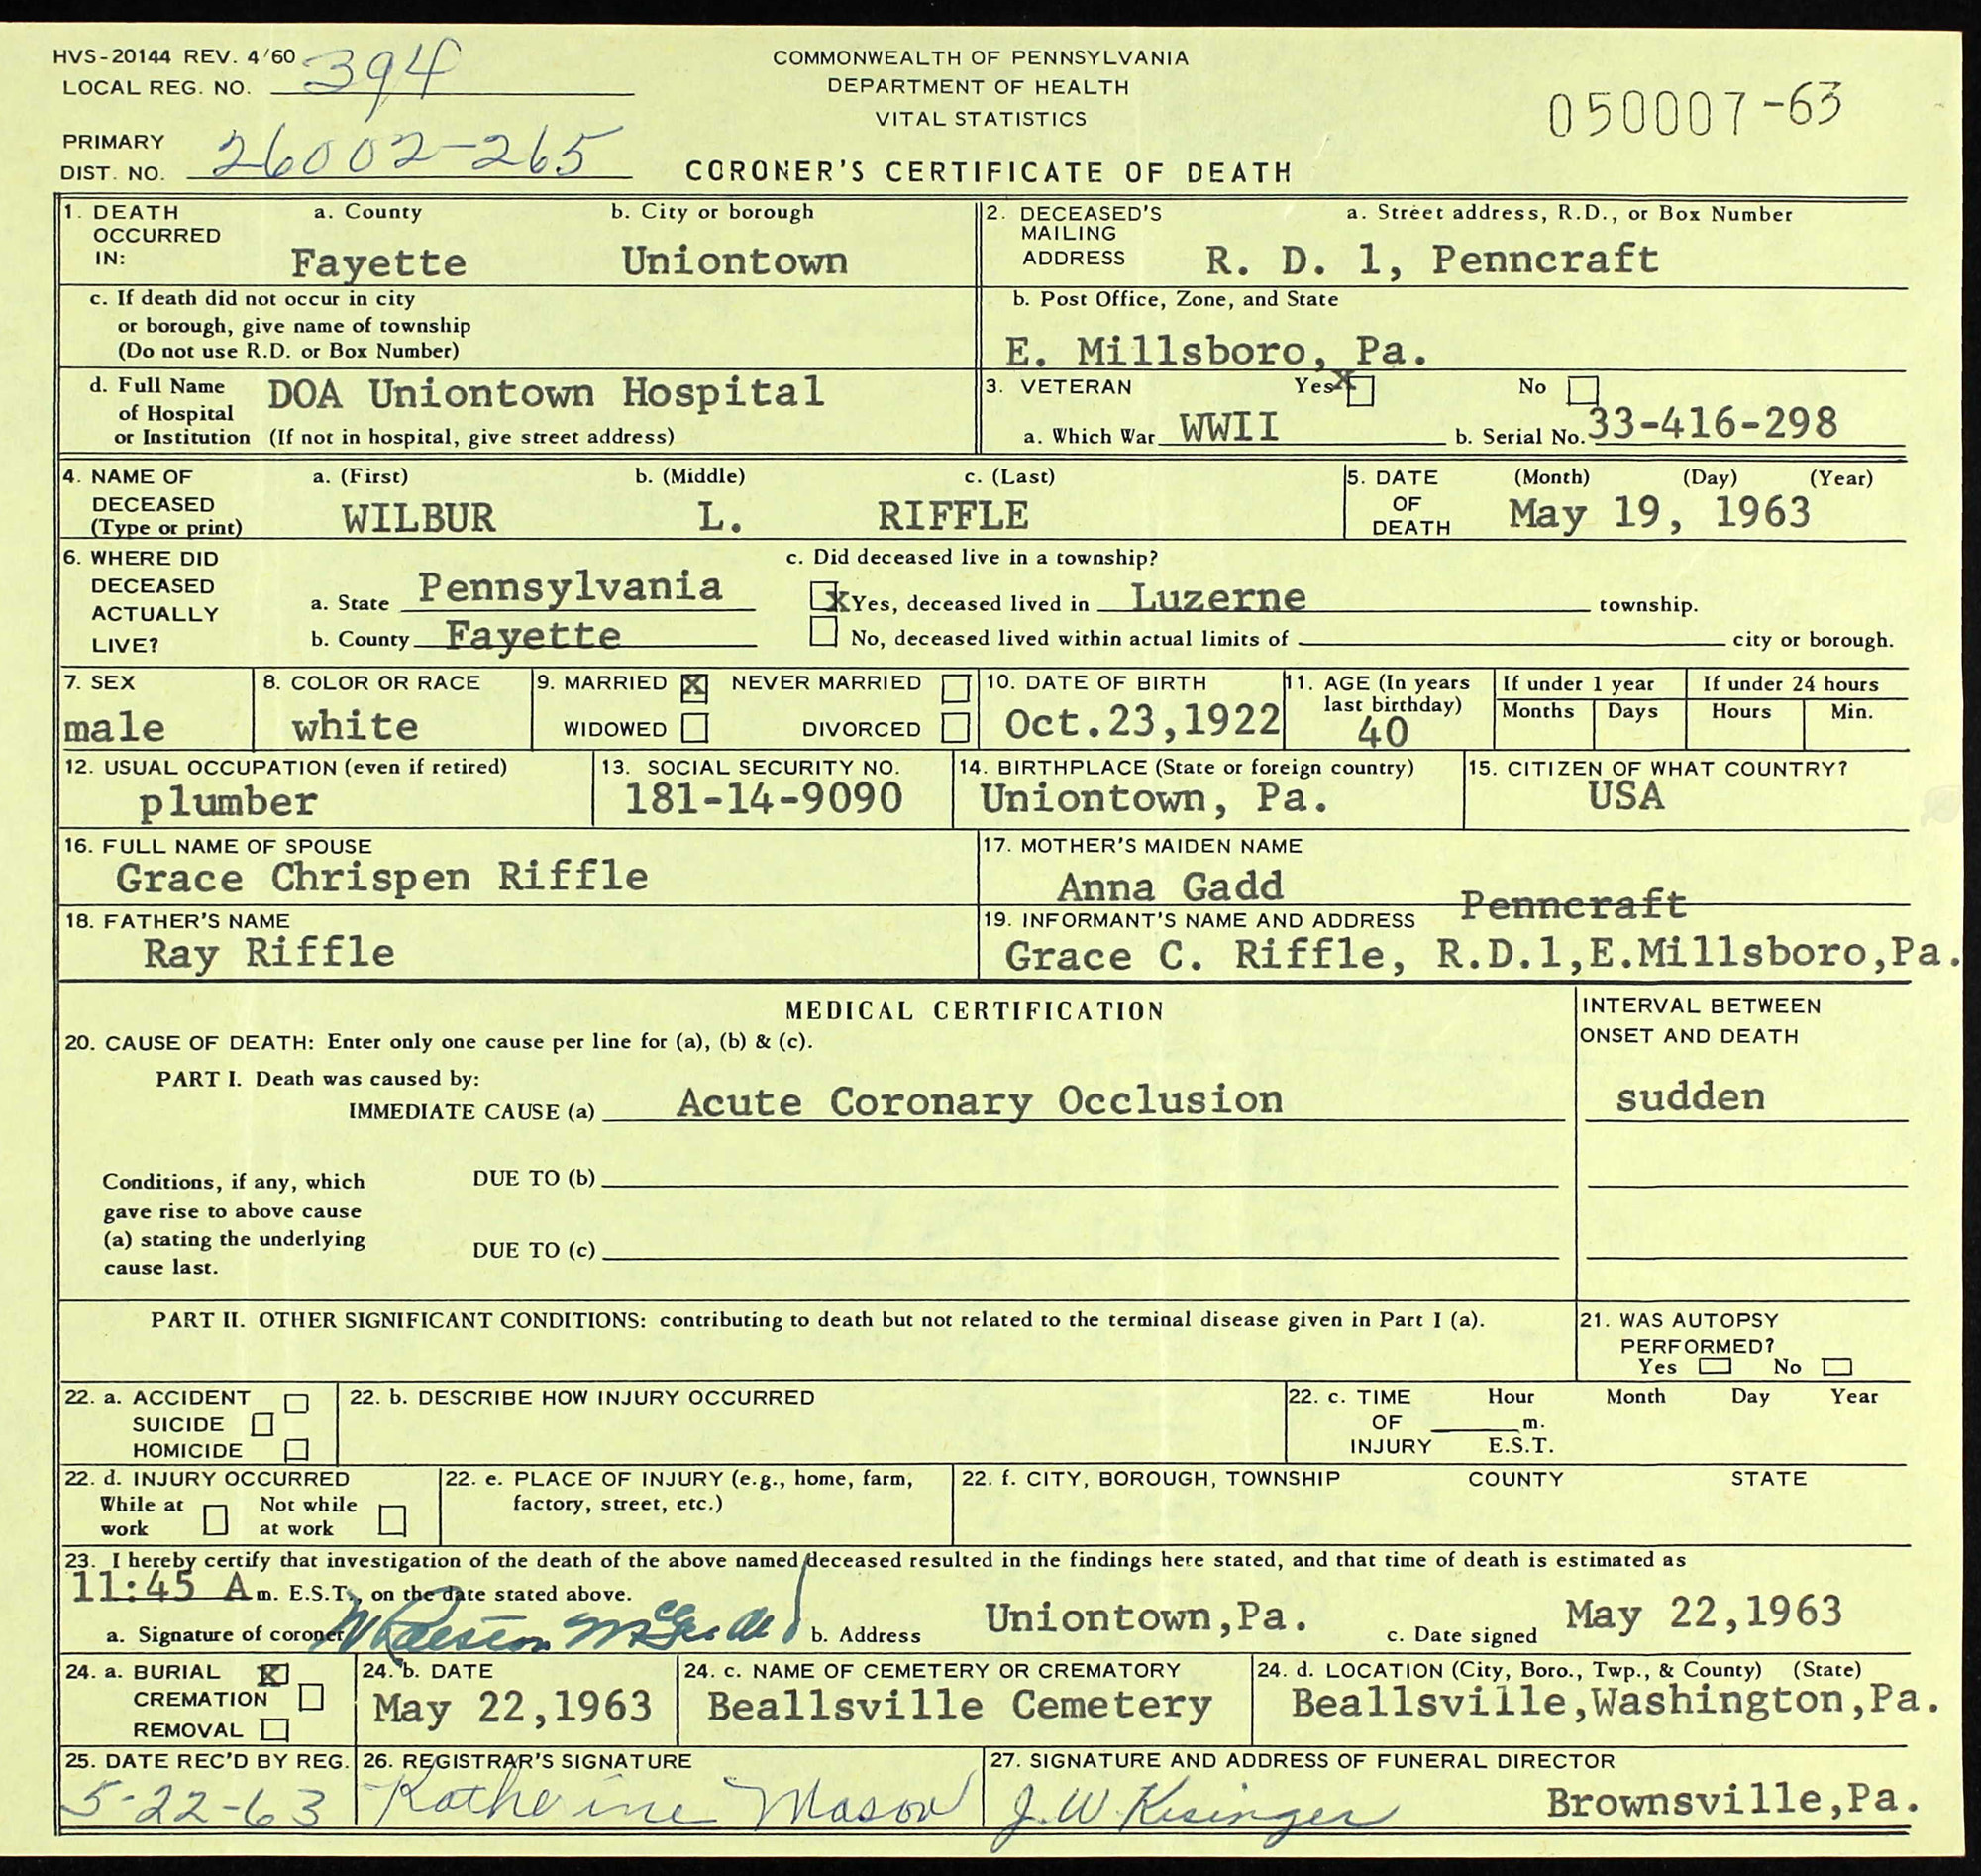 HVS-20144 REV. 4/60
LOCAL REG. NO. 394
COMMONWEALTH OF PENNSYLVANIA
DEPARTMENT OF HEALTH
VITAL STATISTICS
050007-63
PRIMARY
DIST. NO. 26002-265
CORONER'S CERTIFICATE OF DEATH
1. DEATH OCCURRED IN: a. County b. City or borough
Fayette Uniontown
2. DECEASED'S MAILING ADDRESS a. Street address, R.D., or Box Number
R. D. 1, Penncraft
c. If death did not occur in city
or borough, give name of township
(Do not use R.D. or Box Number)
b. Post Office, Zone, and State
E. Millsboro, Pa.
d. Full Name of Hospital or Institution DOA Uniontown Hospital
(If not in hospital, give street address)
3. VETERAN Yes X No
a. Which War WWII b. Serial No. 33-416-298
4. NAME OF DECEASED (Type or print) a. (First) b. (Middle) c. (Last)
WILBUR L. RIFFLE
5. DATE OF DEATH (Month) (Day) (Year)
May 19, 1963
6. WHERE DID DECEASED ACTUALLY LIVE?
a. State Pennsylvania
b. County Fayette
c. Did deceased live in a township?
X Yes, deceased lived in Luzerne township.
No, deceased lived within actual limits of city or borough.
7. SEX
male
8. COLOR OR RACE
white
9. MARRIED X NEVER MARRIED
WIDOWED DIVORCED
10. DATE OF BIRTH
Oct.23,1922
11. AGE (In years last birthday)
40
If under 1 year
Months Days
If under 24 hours
Hours Min.
12. USUAL OCCUPATION (even if retired)
plumber
13. SOCIAL SECURITY NO.
181-14-9090
14. BIRTHPLACE (State or foreign country)
Uniontown, Pa.
15. CITIZEN OF WHAT COUNTRY?
USA
16. FULL NAME OF SPOUSE
Grace Chrispen Riffle
17. MOTHER'S MAIDEN NAME
Anna Gadd
18. FATHER'S NAME
Ray Riffle
19. INFORMANT'S NAME AND ADDRESS Penncraft
Grace C. Riffle, R.D.1,E.Millsboro,Pa.
MEDICAL CERTIFICATION
INTERVAL BETWEEN
ONSET AND DEATH
20. CAUSE OF DEATH: Enter only one cause per line for (a), (b) & (c).
PART I. Death was caused by:
IMMEDIATE CAUSE (a) Acute Coronary Occlusion sudden
Conditions, if any, which
gave rise to above cause
(a) stating the underlying
cause last.
DUE TO (b)
DUE TO (c)
PART II. OTHER SIGNIFICANT CONDITIONS: contributing to death but not related to the terminal disease given in Part I (a).
21. WAS AUTOPSY
PERFORMED?
Yes No
22. a. ACCIDENT
SUICIDE
HOMICIDE
22. b. DESCRIBE HOW INJURY OCCURRED
22. c. TIME OF INJURY Hour Month Day Year
m.
E.S.T.
22. d. INJURY OCCURRED
While at work Not while at work
22. e. PLACE OF INJURY (e.g., home, farm,
factory, street, etc.)
22. f. CITY, BOROUGH, TOWNSHIP COUNTY STATE
23. I hereby certify that investigation of the death of the above named deceased resulted in the findings here stated, and that time of death is estimated as
11:45 A m. E.S.T., on the date stated above.
a. Signature of coroner b. Address Uniontown,Pa. c. Date signed May 22,1963
24. a. BURIAL X
CREMATION
REMOVAL
24. b. DATE
May 22,1963
24. c. NAME OF CEMETERY OR CREMATORY
Beallsville Cemetery
24. d. LOCATION (City, Boro., Twp., & County) (State)
Beallsville,Washington,Pa.
25. DATE REC'D BY REG.
5-22-63
26. REGISTRAR'S SIGNATURE
Katherine Mason
27. SIGNATURE AND ADDRESS OF FUNERAL DIRECTOR
J.W. Kisinger Brownsville,Pa.